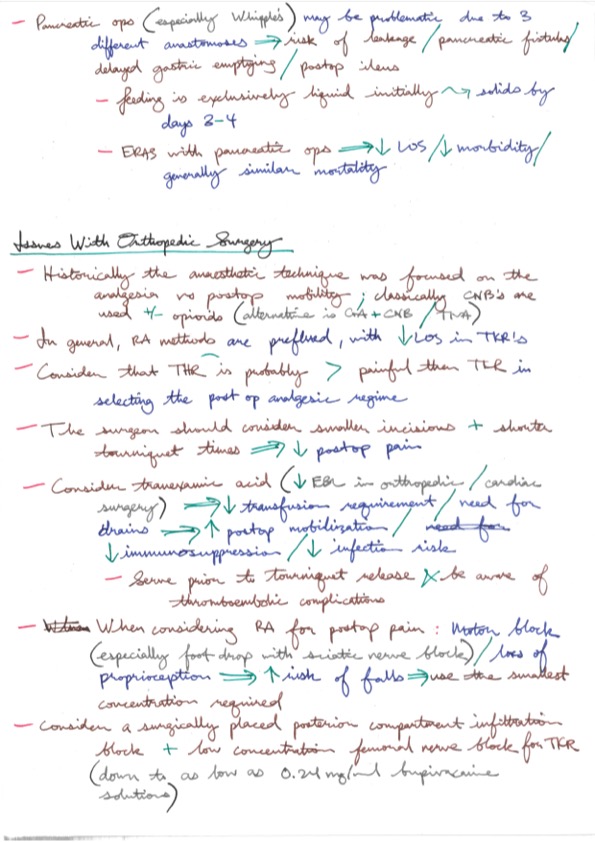 - Pancreatic ops (especially Whipple's) may be problematic due to 3
different anastomoses ⇒ risk of leakage / pancreatic fistula /
delayed gastric emptying / postop ileus
- feeding is exclusively liquid initially ⇝ solids by
days 3-4
- ERAS with pancreatic ops ⇒ ↓ LOS / ↓ morbidity /
generally similar mortality
Issues With Orthopedic Surgery
- Historically the anaesthetic technique was focused on the
analgesia vs postop mobility ; classically CNB's are
used +/- opioids (alternative is GA + CNB / TIVA)
- In general, RA methods are preferred, with ↓ LOS in TKR's
- Consider that THR is probably > painful than TKR in
selecting the post op analgesic regime
- The surgeon should consider smaller incisions + shorter
tourniquet times ⇒ ↓ postop pain
- Consider tranexamic acid (↓ EBL in orthopedic / cardiac
surgery) ⇒ ↓ transfusion requirement / need for
drains ⇒ ↑ postop mobilization / need for
↓ immunosuppression / ↓ infection risk
- Serve prior to tourniquet release & be aware of
thromboembolic complications
- When considering RA for postop pain : Motor block
(especially foot drop with sciatic nerve block) / loss of
proprioception ⇒ ↑ risk of falls ⇒ use the smallest
concentration required
- Consider a surgically placed posterior compartment infiltration
block + low concentration femoral nerve block for TKR
(down to as low as 0.24 mg/ml bupivacaine
solutions)